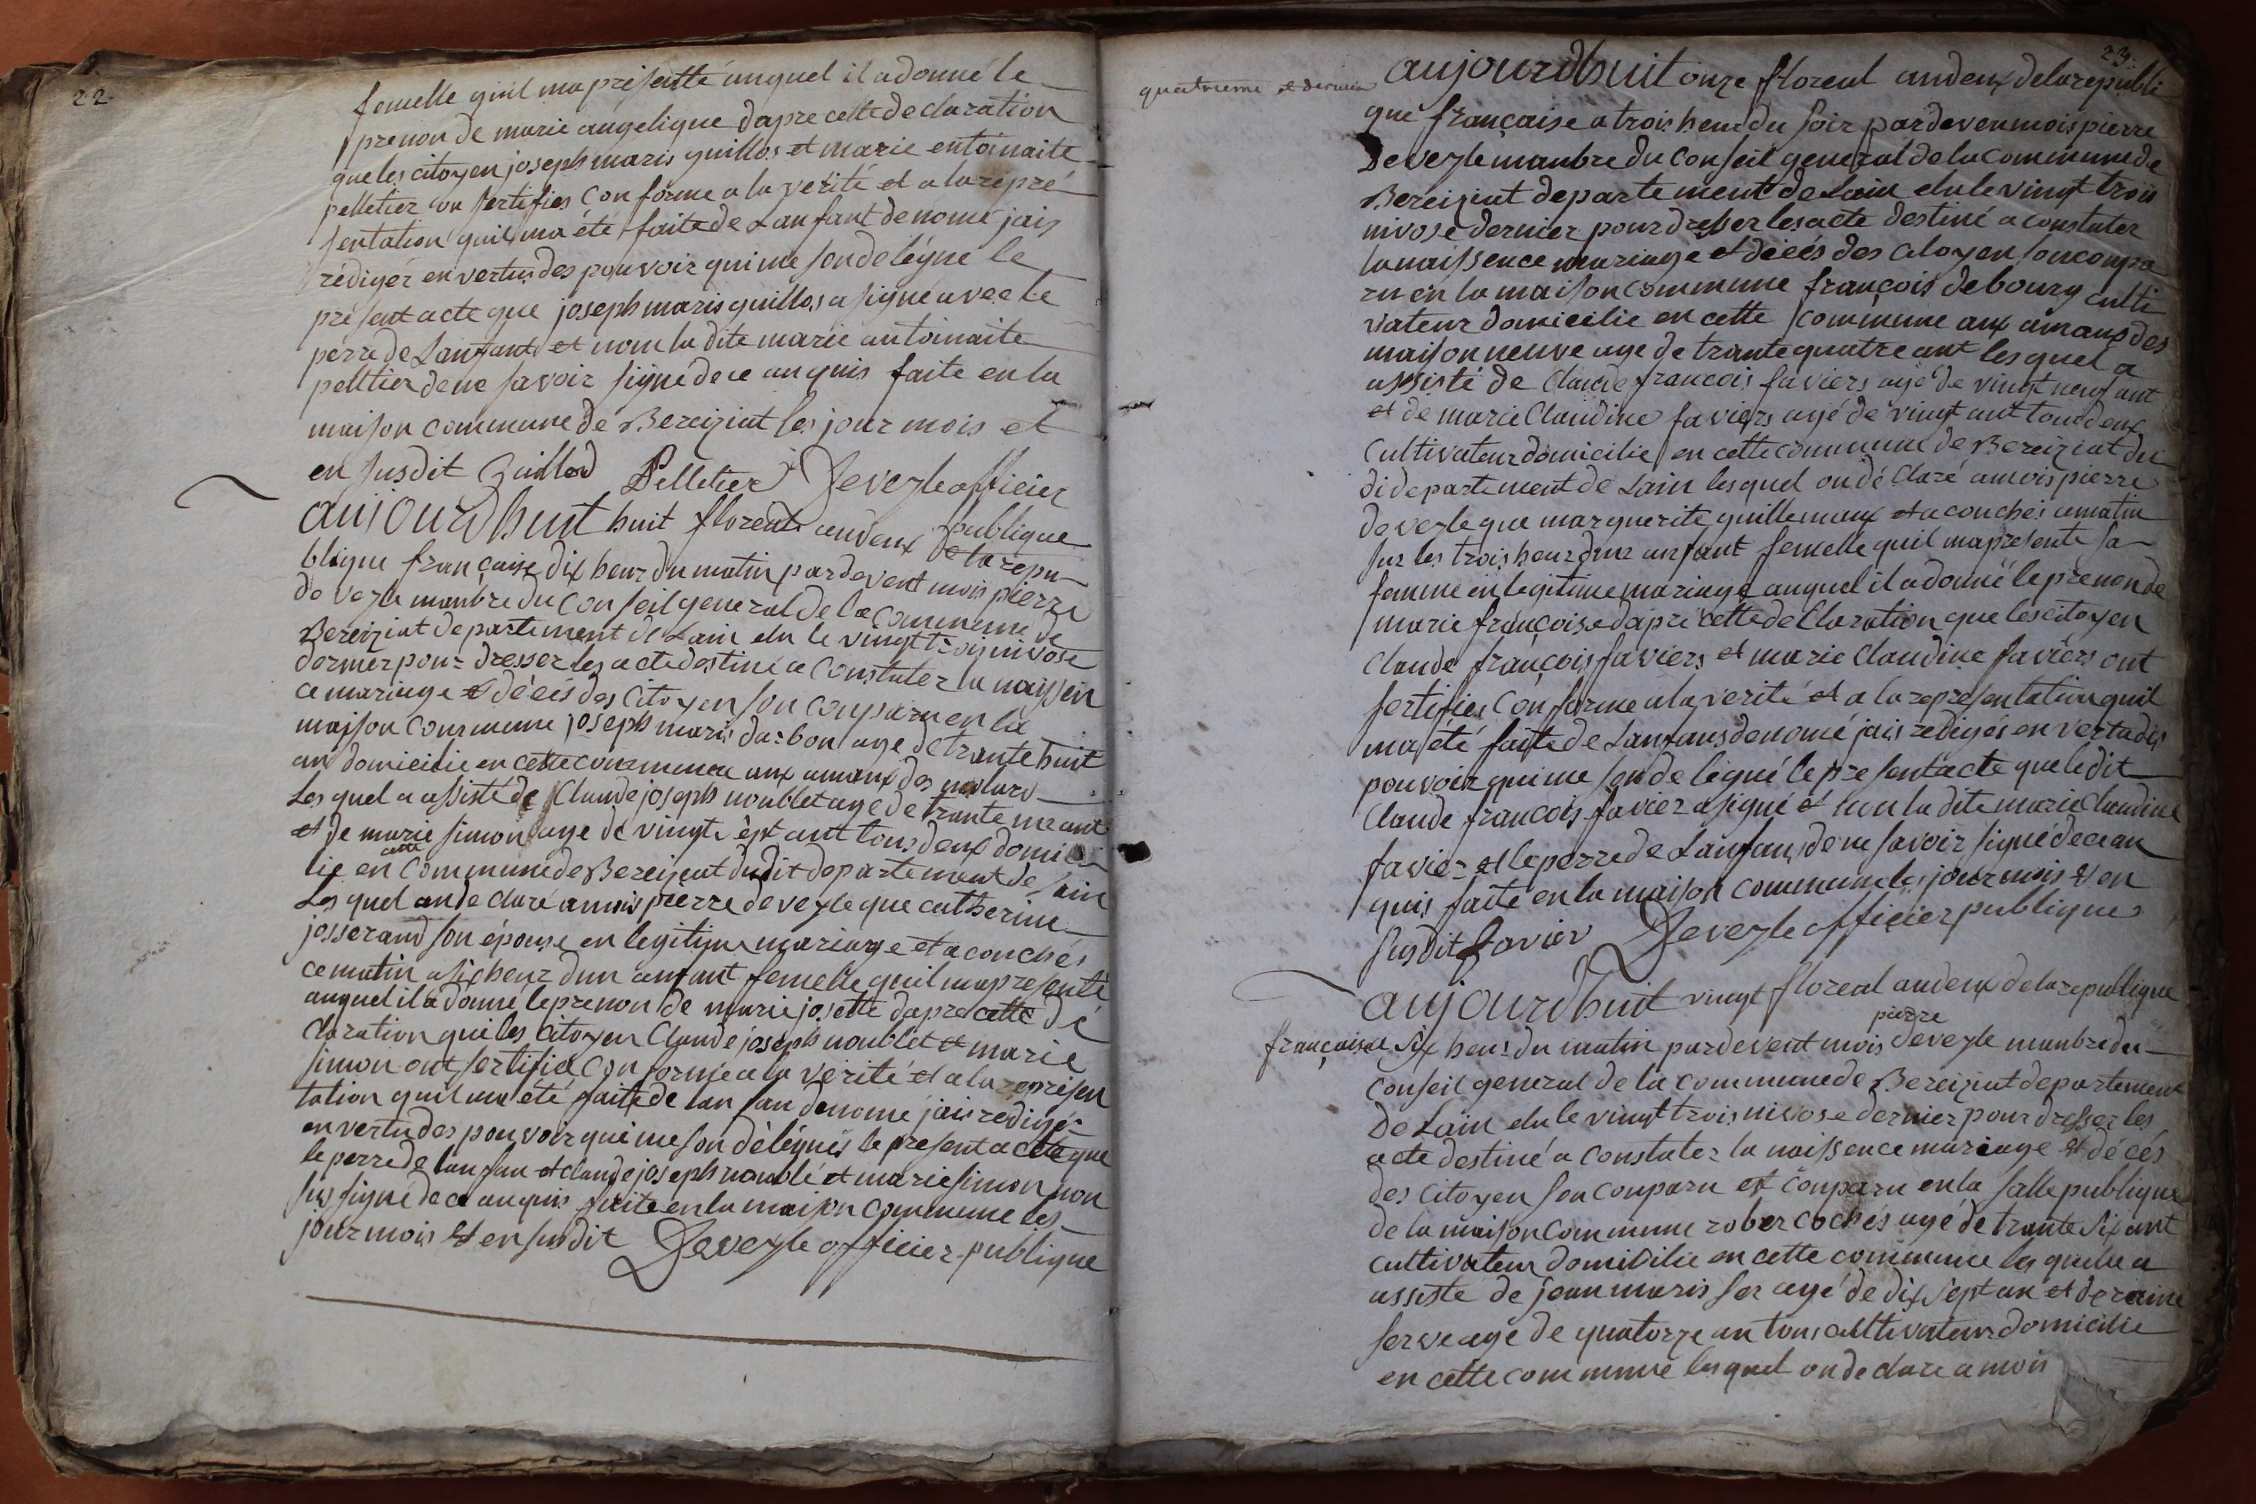 22
femelle quil ma présentté auquel il a donné le
prenon de marie angelique dapre cette declaration
que les citoyen joseph maris guillos et marie entoinaite
pelletier on sertifies conforme a la verité et a la repré
sentation quil ma été faite de Lanfant denomé jais
rédigér en vertus des pouvoir qui me son delégue le
présent acte que joseph maris guillos a signé avec le
perre de Lanfant et nom la dite marie antoinaite
pelltier de ne savoir signé de ce anquis faite en la
maison commune dé Bereiziat les jour mois et
en susdit Guillod Pelletier Deveyle officier
publique
aujourdhuit huit floreal andeux de la repu
blique française dix heur du matin pardevent mois pierre
deveyle manbre du conseil general de la commune de
Bereiziat departement de Lain elu le vingt trois nivose
dernier pour dresser les acte destiné a constater la naissen
ce mariage et décés des citoyen son conparu en la
maison commune joseph maris darbon age de trante huit
an domicilié en cette commune aux amaux des molard
Les quel a assisté de Claude joseph noublet age de trante un ant
et de marie simon age de vingt sept ant tous deux domici
lie en cette commune de Bereiziat dudit departement de Lain
Les quel on declaré a mois pierre deveyle que catherine
josserand son épouse en legitime mariage et aconchés
ce matin a six heur dun anfant femelle quil ma presenté
auquel il a donné le prenon de marie josette dapre cette dé
claration que les citoyen Claude joseph noublet et marie
simon ont sertifié conforme a la verité et a la represen
tation quil ma été faite de lanfan denomé jais redigér
en vertu des pouvoir qui me son délégués le present acte que
le perre de lanfan et claude joseph noublé et marie simon non
sus signé de ce anquis faite en la maison commune les
jour mois et en susdit Deveyle officier publique
23
quatrieme et dernier
aujourdhuit onze floreal andeux de la republi
que française a trois heur du soir pardeven mois pierre
Deveyle manbre du conseil general de la commune de
Bereiziat departement de Lain elu le vingt trois
nivose dernier pour dresser les acte destiné a constater
la naissence mariage et décés des citoyen son conpa
ru en la maison commune françois debourg culti
vateur domicilie en cette commune aux amaux des
maison neuve age de trante quatre ant les quel a
assisté de Claude francois faviers agé de vingt neuf ant
et de marie Claudine faviers agé de vingt ant tous deux
cultivateur domicilie en cette commune de Bereiziat du
di departement de Lain les quel on dé claré a mois pierre
deveyle que marguerite guillemaux et aconchés ce matin
sur les trois heur dun anfant femelle quil ma presente sa
famme en legitime mariage auquel il a donné le prenon de
marie françoise dapré cette declaration que les citoyen
Claude françois faviers et marie Claudine faviers ont
sertifies conforme a la verité et a la representation quil
ma été faite de Lanfans denomé jais redigés en vertu des
pouvoir qui me son delégué le present acte que le dit
Claude francois favier a signé et non la dite marie Claudine
favier et le perre de Lanfans de ne savoir signé de ce an
quis faite en la maison commune les jour mois et en
susdit favier Deveyle officier publique
aujourdhuit vingt floreal andeux de la republique
française a six heur du matin pardevent mois pierre deveyle manbre du
conseil general de la commune de Bereiziat departement
de Lain elu le vingt trois nivose dernier pour dresser les
acte destiné a constater la naissence mariage et décés
des citoyen son conparu et conparu en la salle publique
de la maison commune rober cochés agé de trante six ant
cultivateur domicilie en cette commune les quelu a
assisté de jean maris ser agé de dix sept an et de raine
serve agé de quatorze an tous cultivateur domicilie
en cette commune les quel on declaré a mois